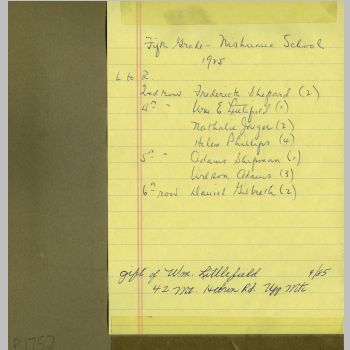 Fifth Grade - Nishuane School
1925
L to R.
2nd row Frederick Shepard (2)
4th " Wm. E. Littlefield (1)
Nathalie (2)
Helen Phillips (4)
5th " Adams Shipman (1)
Wilson Adams (3)
6th row Daniel Gilbreth (2)
gift of Wm. Littlefield 9/85
42 Mt. Hebron Rd. Upp Mtc
P1752